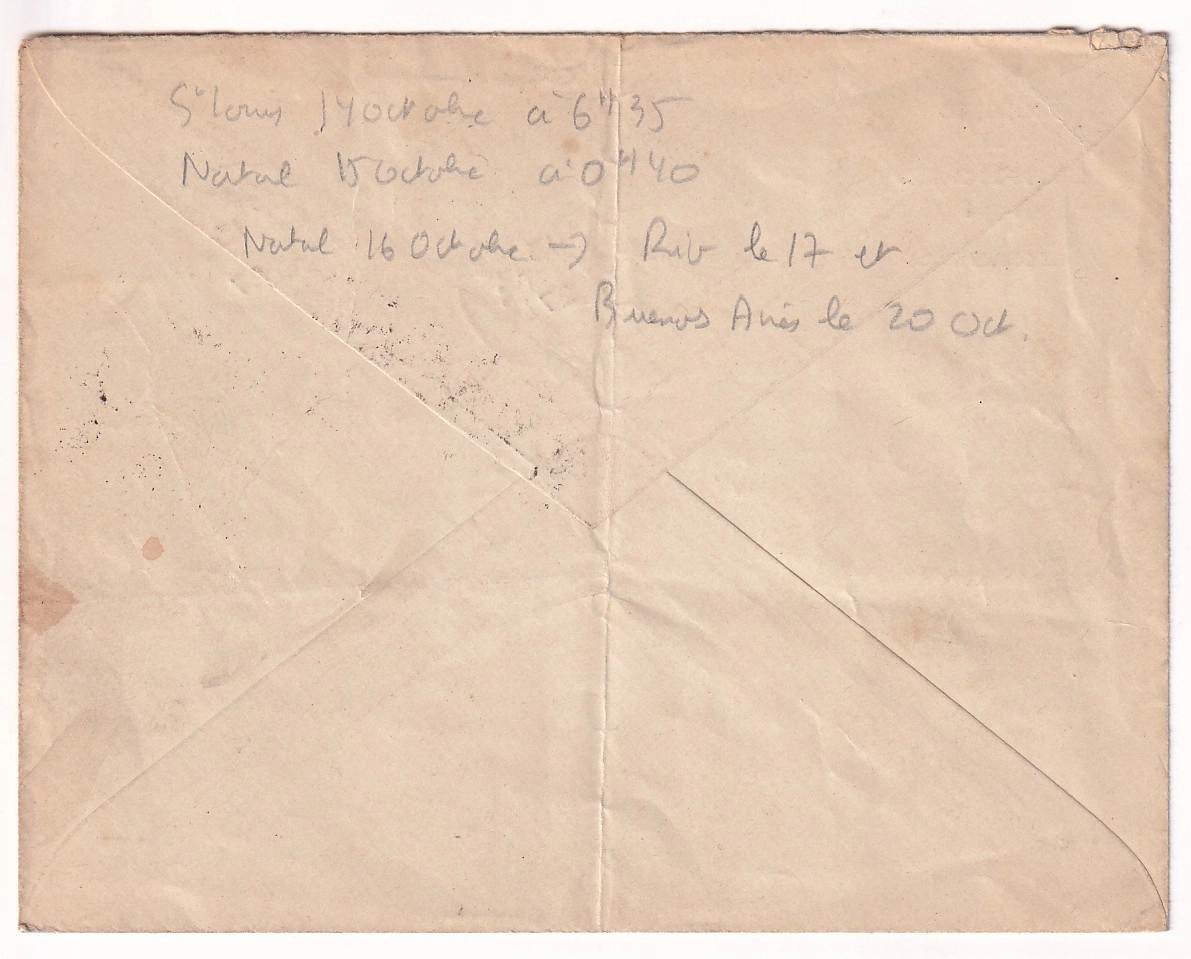 St Louis 14 octobre à 6H35
Natal 15 octobre à 0H40
Natal 16 Octobre → Rio le 17 et
Buenos Aires le 20 Oct.